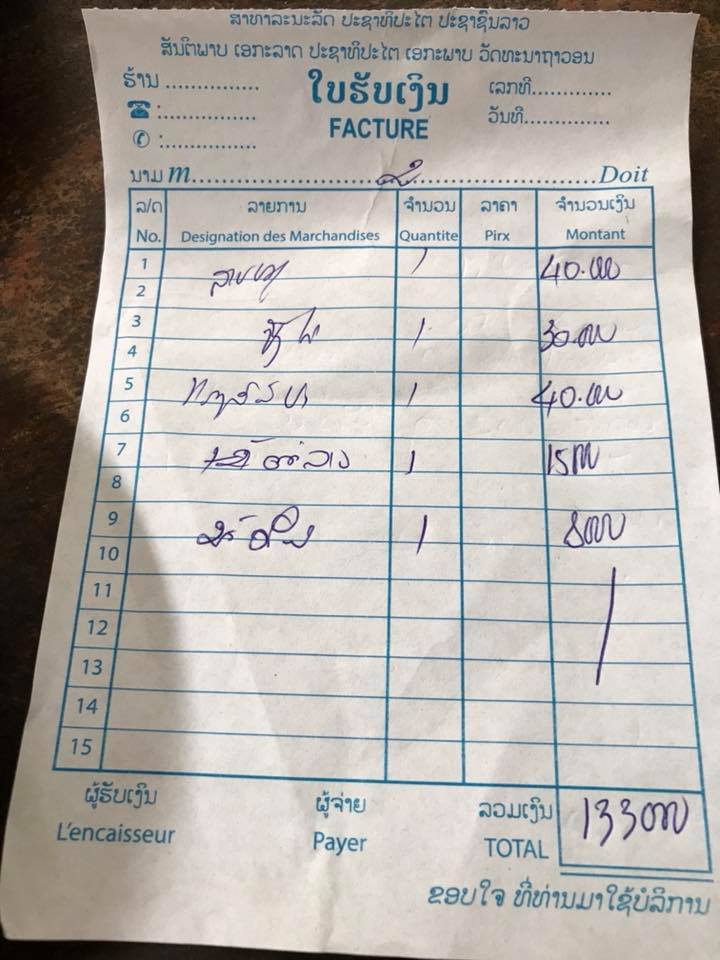 ສາທາລະນະລັດ ປະຊາທິປະໄຕ ປະຊາຊົນລາວ
ສັນຕິພາບ ເອກະລາດ ປະຊາທິປະໄຕ ເອກະພາບ ວັດທະນາຖາວອນ
ຮ້ານ ............... ໃບຮັບເງິນ ເລກທີ.............
☎ :............... FACTURE ວັນທີ..............
✆ :...............
ນາມ m............................................................Doit
ລ/ດ ລາຍການ ຈຳນວນ ລາຄາ ຈຳນວນເງິນ
No. Designation des Marchandises Quantite Pirx Montant
1 1 40.000
2
3 1 30.000
4
5 1 40.000
6
7 1 15000
8
9 1 8000
10
11
12
13
14
15
ຜູ້ຮັບເງິນ ຜູ້ຈ່າຍ ລວມເງິນ 133000
L'encaisseur Payer TOTAL
ຂອບໃຈ ທີ່ທ່ານມາໃຊ້ບໍລິການ